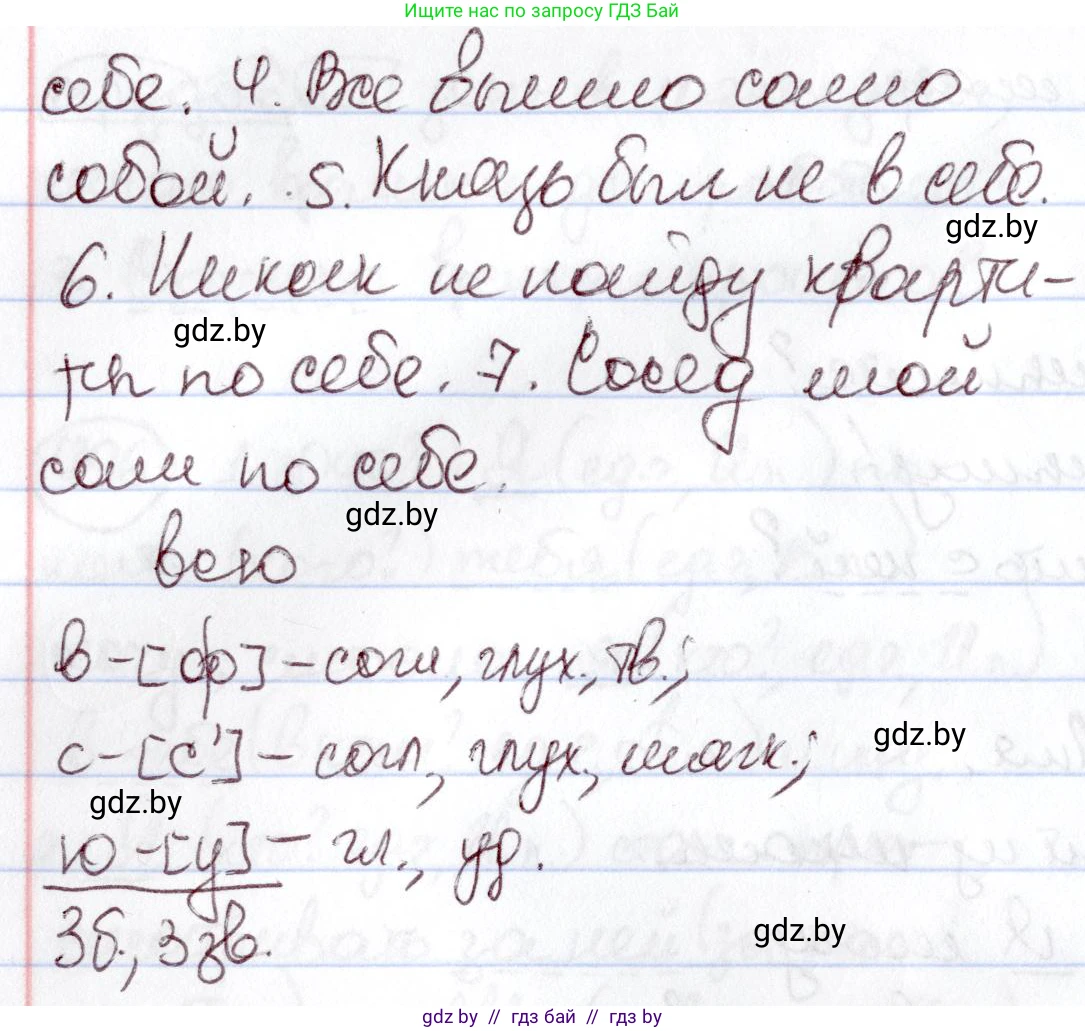 Ищите нас по запросу ГДЗ Бай
себе. 4. Все вышло само
собой. 5. Князь был не в себе.
gdz.by
6. Никак не найду кварти-
gdz.by
ры по себе. 7. Сосед мой
сам по себе.
gdz.by
всю
в-[ф]-согл, глух., тв.;
с-[с']-согл, глух, мягк.;
gdz.by
gdz.by
ю-[у]- гл., уд.
3б., 3 зв.
gdz.by
gdz by // гдз бай // гдз by